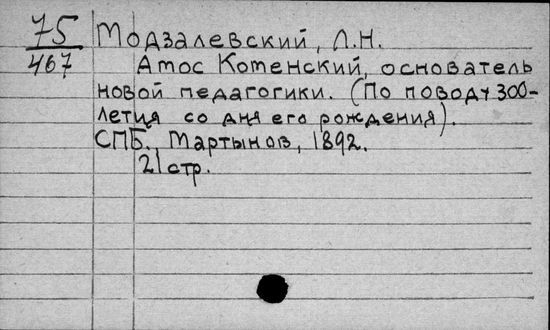 75 Модзалевский, Л.Н.
467 Амос Коменский, основатель
новой педагогики. (По поводу 300-
летия со дня его рождения).
СПБ., Мартынов, 1892.
21 стр.